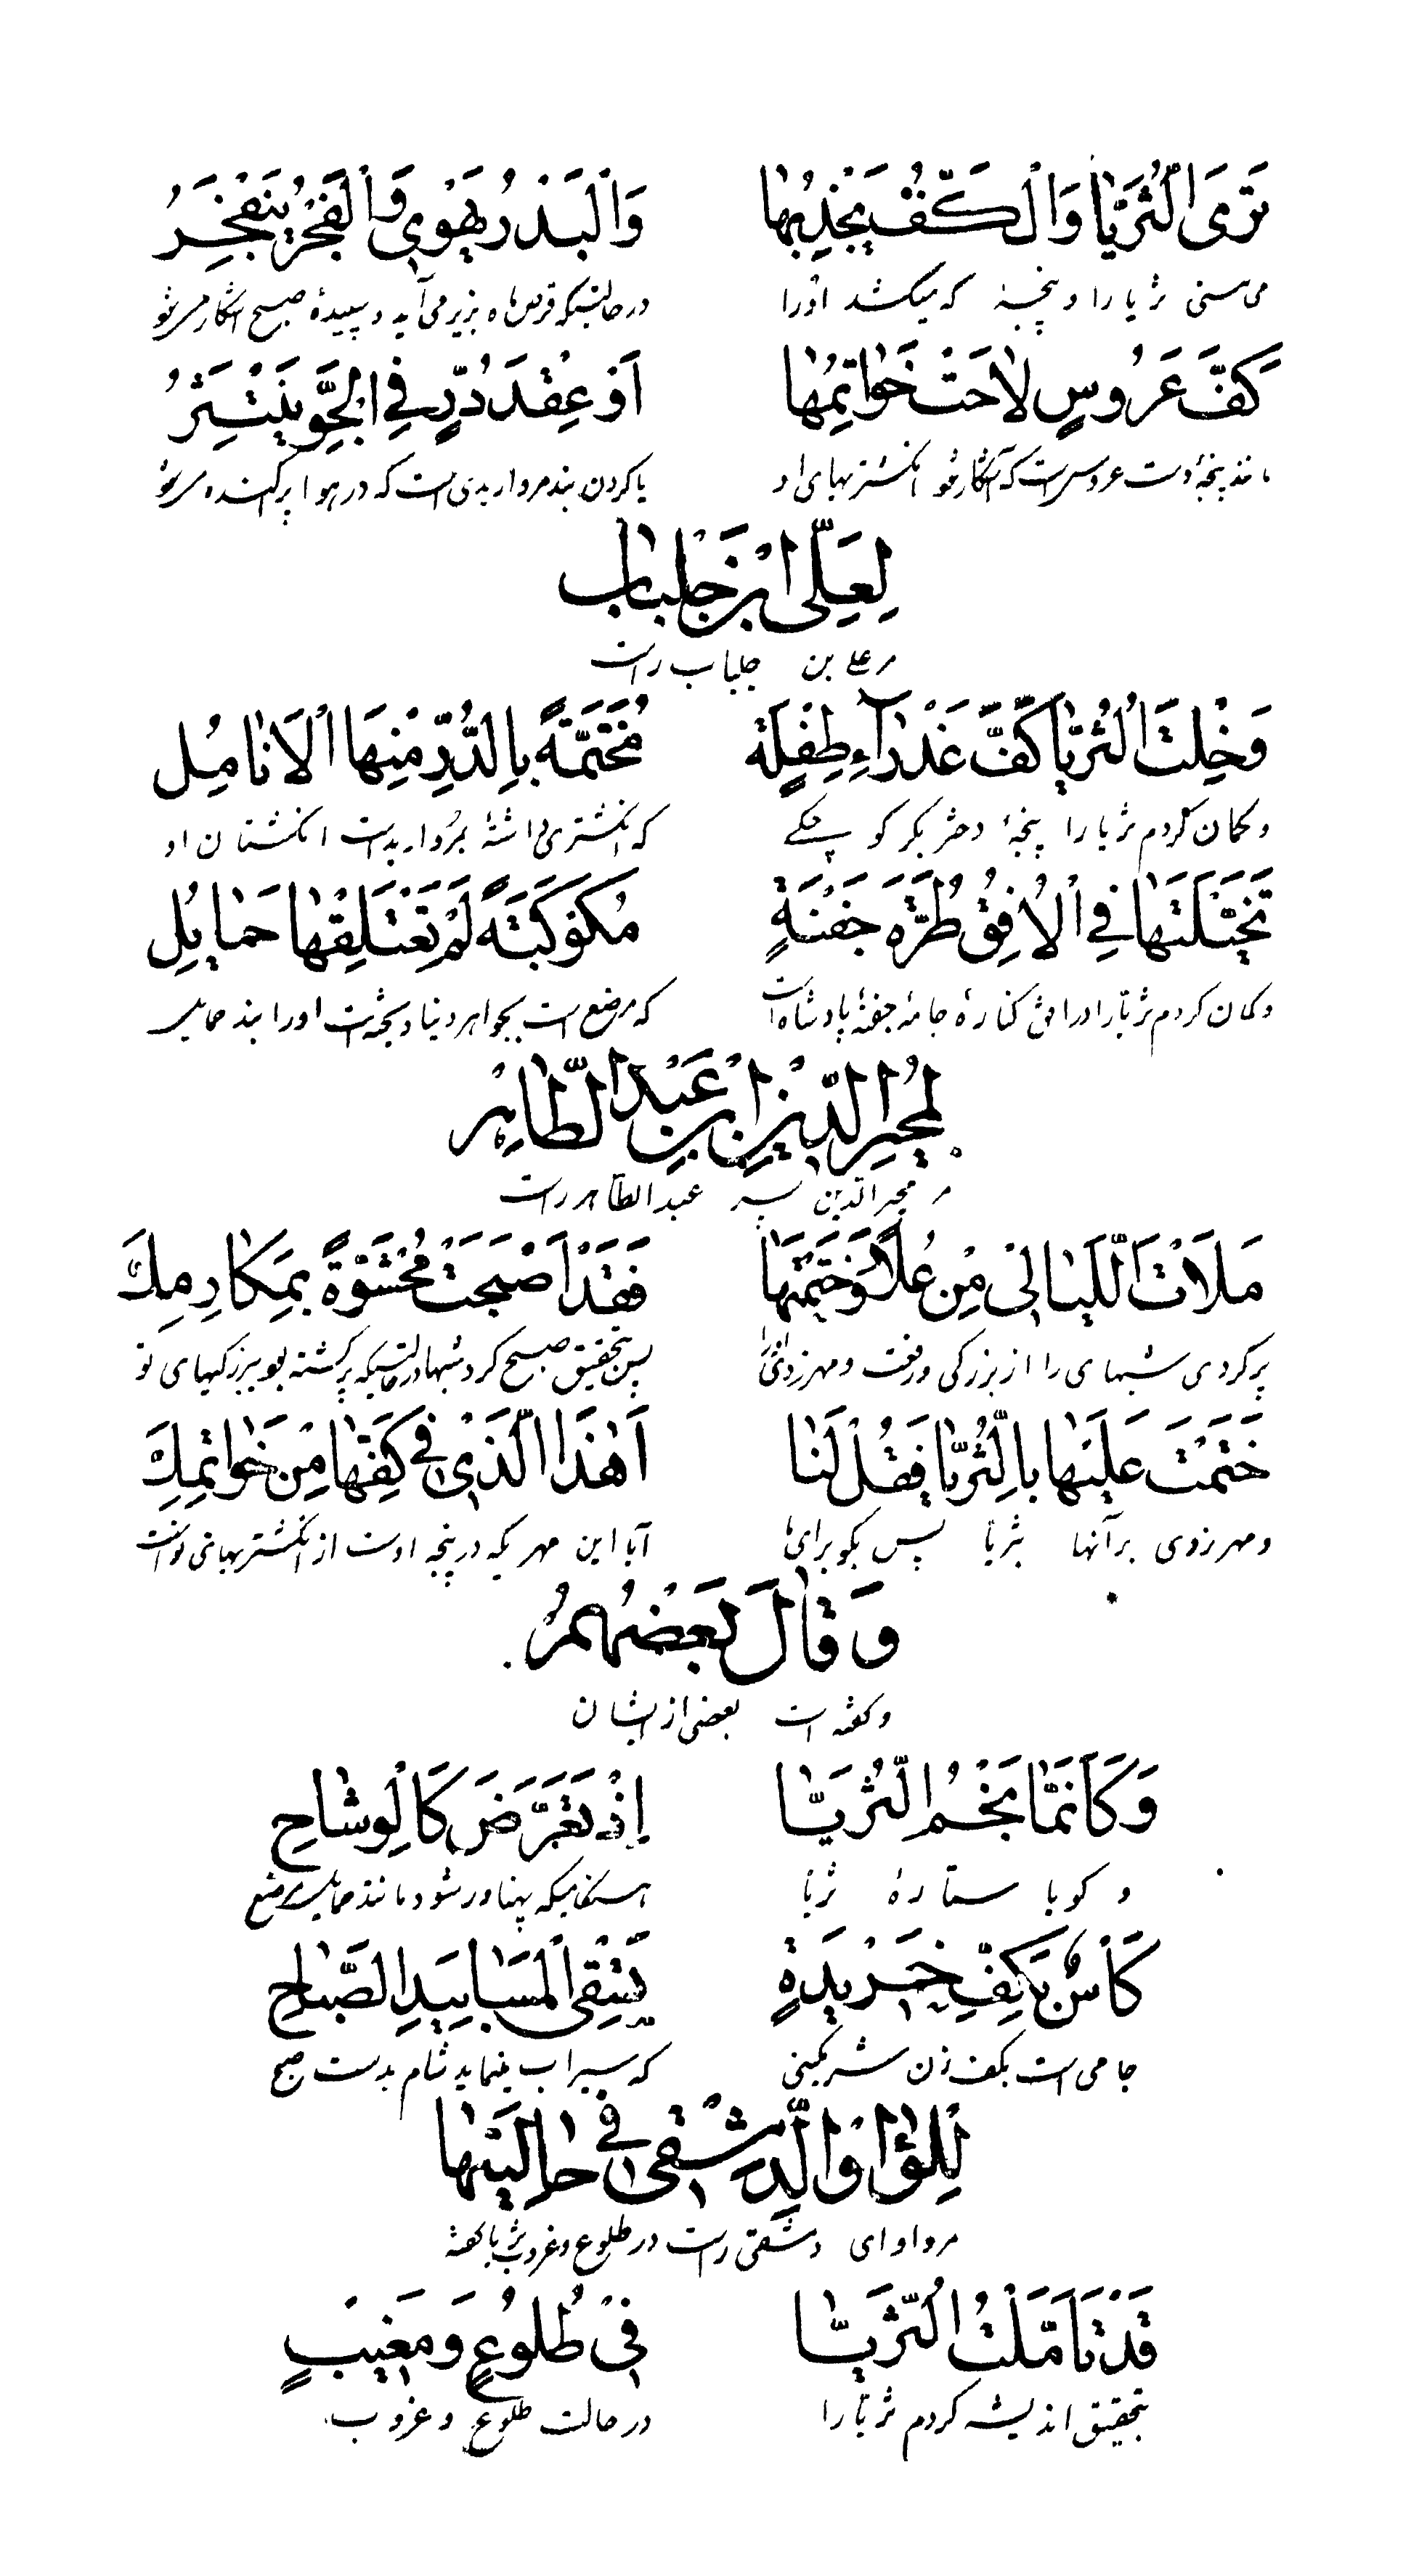 تَرَى الثُّرَيَّا وَالْكَفُّ يَجْذِبُهَا وَالْبَدْرُ يَهْوِي وَالْفَجْرُ يَنْفَجِرُ
می بینی ثریا را و پنجه که میکشد او را در حالتیکه قرص ماه بزیر می آید و سپیدهٔ صبح آشکار میشود
كَفَّ عَرُوسٍ لَاحَتْ خَوَاتِمُهَا اَوْ عِقْدَ دُرٍّ فِي الْجَوِّ يَنْتَثِرُ
مانند پنجهٔ دست عروسی است که آشکار شود انگشتریهای او یا گردن بند مرواریدی است که در هوا پراکنده میشود
لِعَلِيِّ ابْنِ جَلْبَابِ
مر علی بن جلباب راست
وَخِلْتَ الثُّرَيَّا كَفَّ عَذْرَآءِ طِفْلَةٍ مُخَتَّمَةً بِالدُّرِّ مِنْهَا الْاَنَامِلُ
و گمان کردم ثریا را پنجهٔ دختر بکر کوچکی که انگشتری داشتهٔ بمروارید است انگشتان او
تَخَيَّلْتَهَا فِي الْاُفُقِ طُرَّةَ جَفْنَةٍ مُكَوْكَبَةً لَمْ تَعْتَلِقْهَا حَمَايِلُ
و گمان کردم ثریا را در افق کنارهٔ جامهٔ جفنهٔ پادشاه است که مرصع است بجواهر و نیاویخته است او را بند حمایلی
لِمُجِيرِ الدِّينِ ابْنِ عَبْدِ الطَّاهِرْ
مر مجیر الدین پسر عبد الطاهر راست
مَلَأْتَ اللَّيَالِيْ مِنْ عُلًا وَخَتَمْتَهَا فَقَدْ اَصْبَحَتْ مَحْشُوَّةً بِمَكَارِمِكَ
پر کردی شبهای را از بزرگی و رفعت و مهر زدی آنرا پس بتحقیق صبح کرد شبها در حالتیکه پر گشته بود ببزرگیهای تو
خَتَمْتَ عَلَيْهَا بِالثُّرَيَّا فَقُلْ لَنَا اَهٰذَا الَّذِيْ فِي كَفِّهَا مِنْ خَوَاتِمِكَ
و مهر زدی بر آنها بثریا پس بگو برای ما آیا این مهر یکه در پنجه اوست از انگشتریهای تو است
وَ قَالَ بَعْضُهُمُ
و گفته است بعضی از ایشان
وَكَاَنَّمَا نَجْمُ الثُّرَيَّا اِذْ تَعَرَّضَ كَالْوِشَاحِ
و گویا ستارهٔ ثریا هنگامیکه پهناور شود مانند حمایل مرصع
كَأْسٌ بِكَفِّ خَرِيْدَةٍ يَسْقِي الْمَسَا بِيَدِ الصَّبَاحِ
جامی است بکف زن شرمگینی که سیراب مینماید شام بدست صبح
لِلْوَاْوَا الدِّمَشْقِي فِي حَالَيْهَا
مر واوای دمشقی راست در طلوع و غروب ثریا گفته
قَدْ تَاَمَّلْتُ الثُّرَيَّا فِيْ طُلُوعٍ وَ مَغِيْبٍ
بتحقیق اندیشه کردم ثریا را در حالت طلوع و غروب